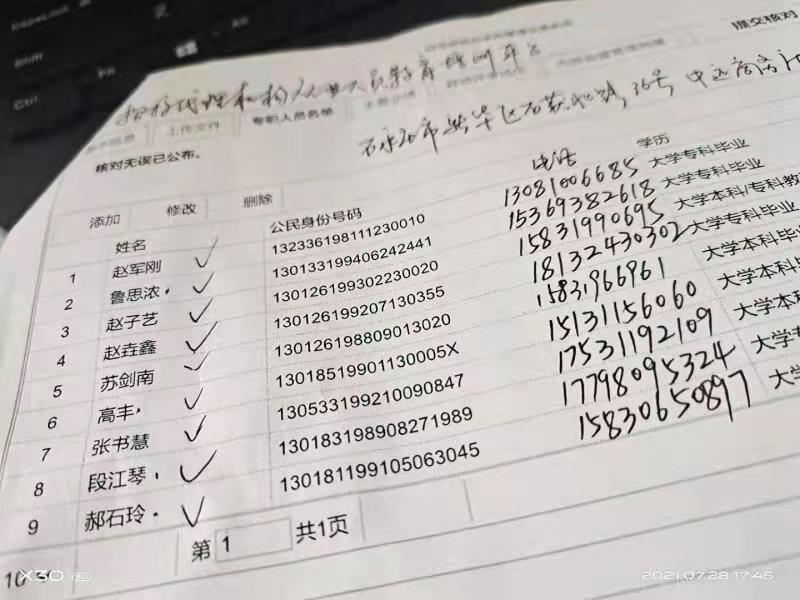 提交核对
招标代理机构从业人员教育培训平台
上传文件 专职人员名单
石家庄市新华区石获北路36号中远商务
核对无误已公布。
添加 修改 删除
姓名 公民身份号码 电话 学历
1 赵军刚 ✓ 132336198111230010 13081006685 大学专科毕业
2 鲁思浓 ✓ 130133199406242441 15369382618 大学专科毕业
3 赵子艺 ✓ 130126199302230020 15831990695 大学本科/专科教
4 赵垚鑫 ✓ 130126199207130355 18132430302 大学专科毕业
5 苏剑南 ✓ 130126198809013020 15831966961 大学本科毕业
6 高丰 ✓ 13018519901130005X 15131156060 大学本科毕
7 张书慧 ✓ 130533199210090847 17531192109 大学本科
8 段江琴 ✓ 130183198908271989 17798095324 大学专
9 郝石玲 ✓ 130181199105063045 15830650897 大学
10 第 1 共1页
X30 2021.07.28 17:46